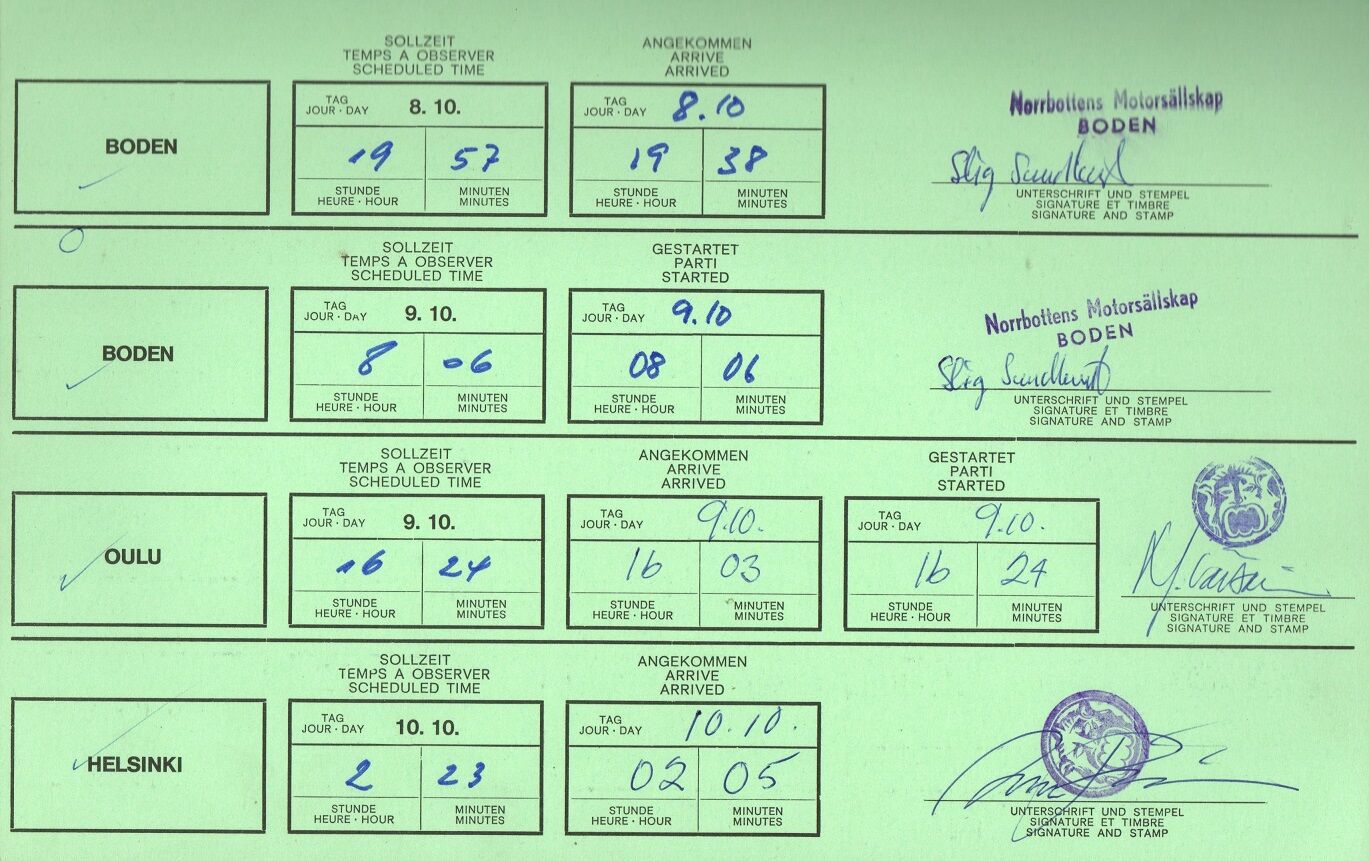 SOLLZEIT
TEMPS A OBSERVER
SCHEDULED TIME
ANGEKOMMEN
ARRIVE
ARRIVED
BODEN
TAG
JOUR · DAY 8. 10.
19 57
STUNDE
HEURE · HOUR
MINUTEN
MINUTES
TAG
JOUR · DAY 8.10
19 38
STUNDE
HEURE · HOUR
MINUTEN
MINUTES
Norrbottens Motorsällskap
BODEN
Stig
UNTERSCHRIFT UND STEMPEL
SIGNATURE ET TIMBRE
SIGNATURE AND STAMP
SOLLZEIT
TEMPS A OBSERVER
SCHEDULED TIME
GESTARTET
PARTI
STARTED
BODEN
TAG
JOUR · DAY 9. 10.
8 06
STUNDE
HEURE · HOUR
MINUTEN
MINUTES
TAG
JOUR · DAY 9.10
08 06
STUNDE
HEURE · HOUR
MINUTEN
MINUTES
Norrbottens Motorsällskap
BODEN
Stig
UNTERSCHRIFT UND STEMPEL
SIGNATURE ET TIMBRE
SIGNATURE AND STAMP
SOLLZEIT
TEMPS A OBSERVER
SCHEDULED TIME
ANGEKOMMEN
ARRIVE
ARRIVED
GESTARTET
PARTI
STARTED
OULU
TAG
JOUR · DAY 9. 10.
16 24
STUNDE
HEURE · HOUR
MINUTEN
MINUTES
TAG
JOUR · DAY 9.10.
16 03
STUNDE
HEURE · HOUR
MINUTEN
MINUTES
TAG
JOUR · DAY 9.10.
16 24
STUNDE
HEURE · HOUR
MINUTEN
MINUTES
UNTERSCHRIFT UND STEMPEL
SIGNATURE ET TIMBRE
SIGNATURE AND STAMP
SOLLZEIT
TEMPS A OBSERVER
SCHEDULED TIME
ANGEKOMMEN
ARRIVE
ARRIVED
HELSINKI
TAG
JOUR · DAY 10. 10.
2 23
STUNDE
HEURE · HOUR
MINUTEN
MINUTES
TAG
JOUR · DAY 10.10.
02 05
STUNDE
HEURE · HOUR
MINUTEN
MINUTES
UNTERSCHRIFT UND STEMPEL
SIGNATURE ET TIMBRE
SIGNATURE AND STAMP